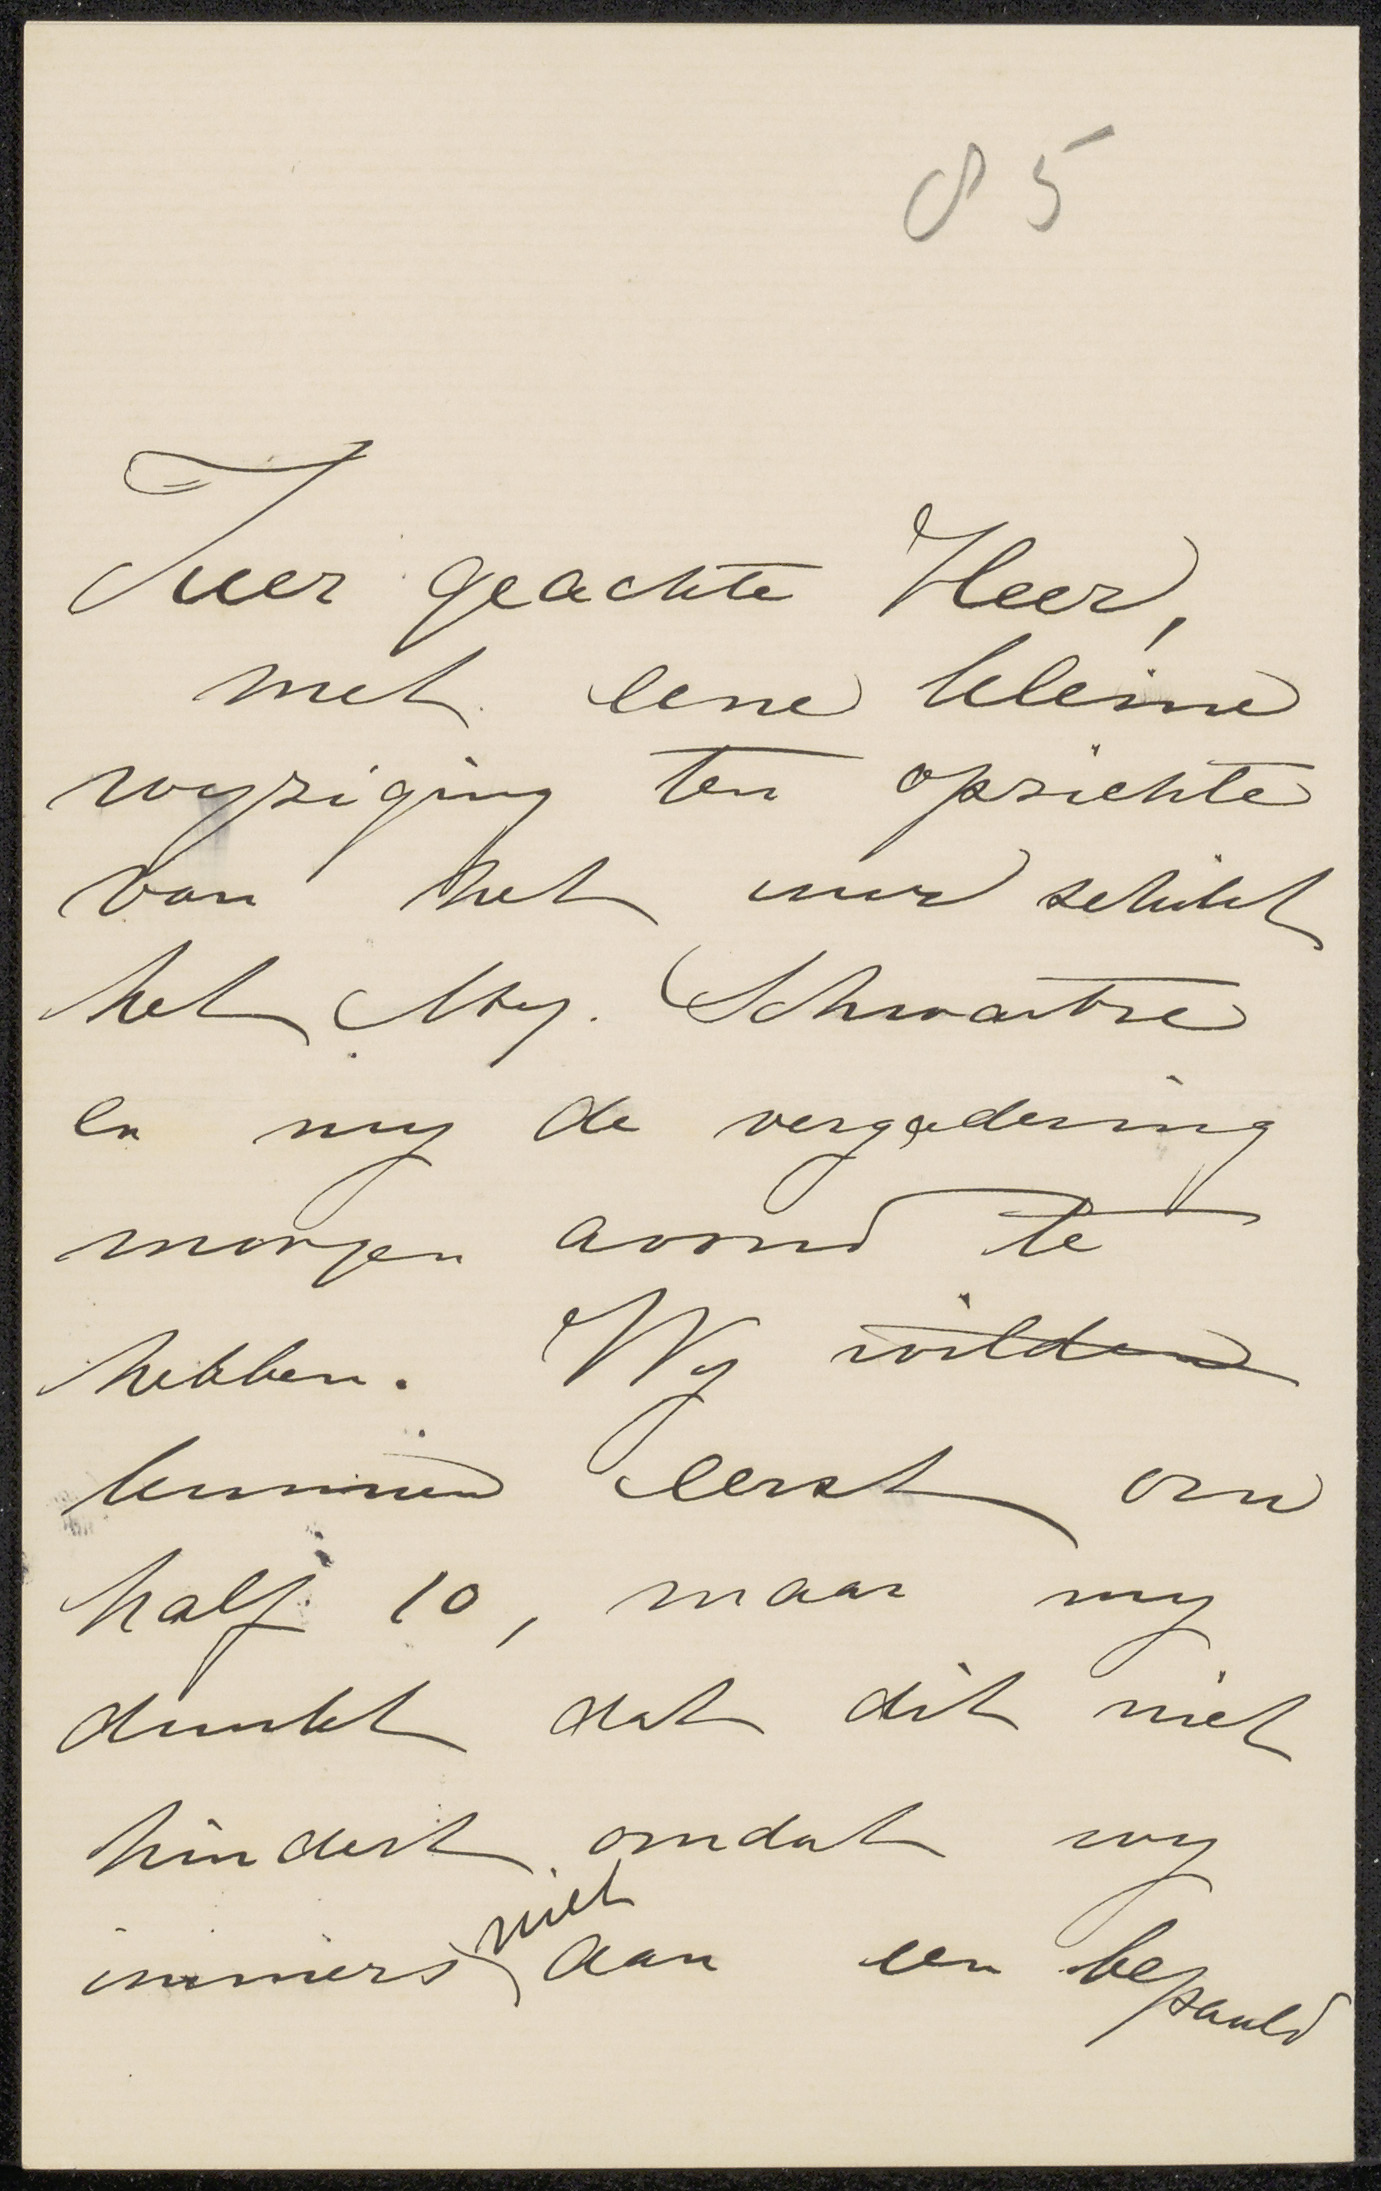 85
Zeer geachte Heer,
met eene kleine
wyziging ten opzichte
van het uur schikt
het Mej. Schwartze
en my de vergadering
morgen avond te
hebben. Wy wilden
kunnen eerst om
half 10, maar my
dunkt dat dit niet
hindert omdat wy
immers niet aan een bepaald